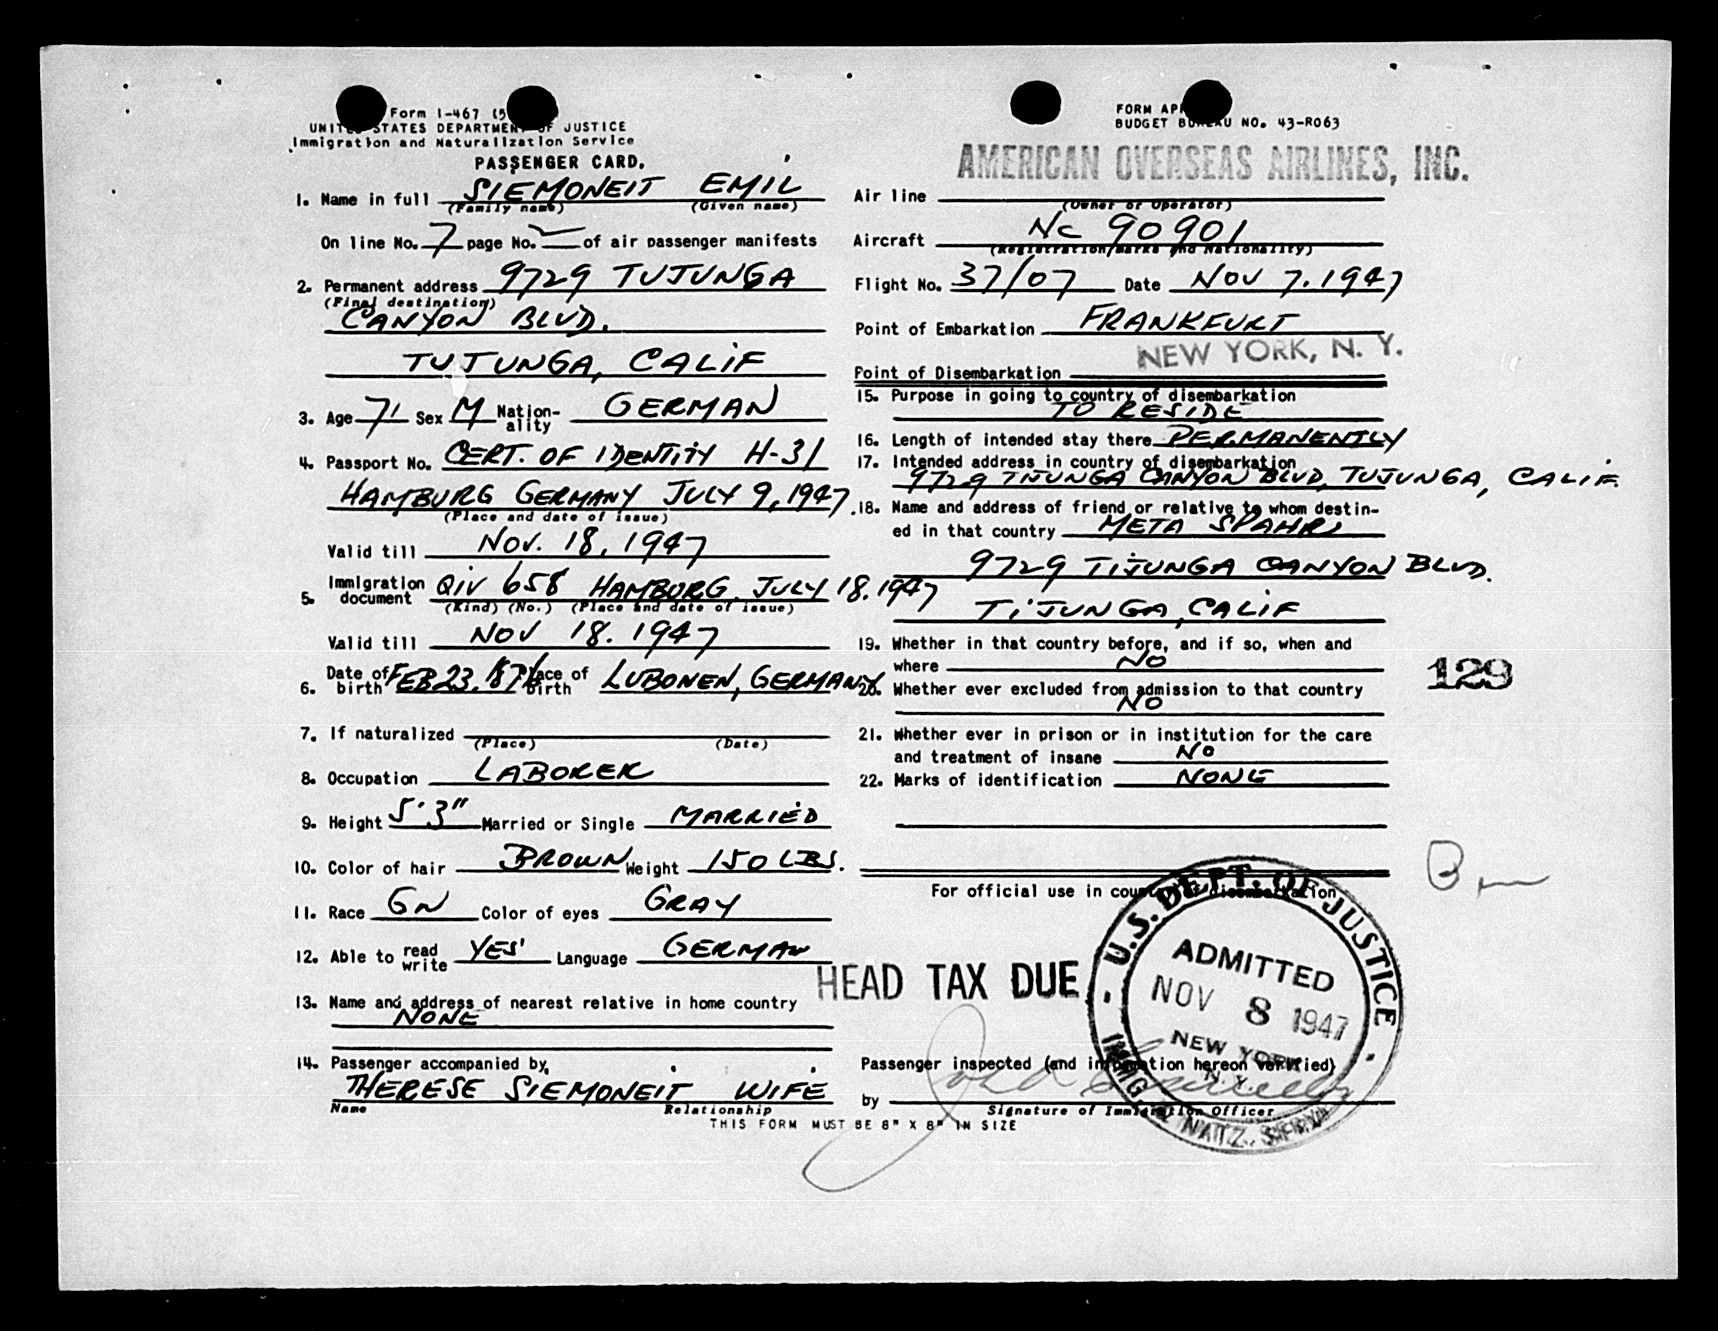 Form I-467 (5
UNITED STATES DEPARTMENT OF JUSTICE
Immigration and Naturalization Service
PASSENGER CARD.
1. Name in full SIEMONEIT EMIL
(Family name) (Given name)
On line No. 7 page No. of air passenger manifests
2. Permanent address 9729 TUJUNGA
(Final destination)
CANYON BLVD.
TUJUNGA, CALIF
3. Age 71 Sex M Nationality GERMAN
4. Passport No. CERT. OF IDENTITY H-31
HAMBURG GERMANY JULY 9, 1947
(Place and date of issue)
Valid till NOV. 18, 1947
5. Immigration document QIV 658 HAMBURG. JULY 18. 1947
(Kind) (No.) (Place and date of issue)
Valid till NOV 18. 1947
6. Date of birth FEB 23. 1876 Place of birth LUBONEN, GERMANY
7. If naturalized
(Place) (Date)
8. Occupation LABORER
9. Height 5'3" Married or Single MARRIED
10. Color of hair BROWN Weight 150 LBS.
11. Race GN Color of eyes GRAY
12. Able to read write YES Language GERMAN
13. Name and address of nearest relative in home country
NONE
14. Passenger accompanied by,
THERESE SIEMONEIT WIFE
Name Relationship
THIS FORM MUST BE 8" X 8" IN SIZE
FORM AP
BUDGET BUREAU NO. 43-R063
AMERICAN OVERSEAS AIRLINES, INC.
Air line
(Owner or Operator)
Aircraft NC 90901
(Registration marks and Nationality)
Flight No. 37/07 Date NOV 7. 1947
Point of Embarkation FRANKFURT
NEW YORK, N. Y.
Point of Disembarkation
15. Purpose in going to country of disembarkation
TO RESIDE
16. Length of intended stay there PERMANENTLY
17. Intended address in country of disembarkation
9729 TUJUNGA CANYON BLVD, TUJUNGA, CALIF.
18. Name and address of friend or relative to whom destin-
ed in that country META SPAHR
9729 TIJUNGA CANYON BLVD.
TIJUNGA, CALIF
19. Whether in that country before, and if so, when and
where NO
20. Whether ever excluded from admission to that country
NO
21. Whether ever in prison or in institution for the care
and treatment of insane NO
22. Marks of identification NONE
129
For official use in country of disembarkation
HEAD TAX DUE
U.S. DEPT. OF JUSTICE
ADMITTED
NOV 8 1947
NEW YORK
N. Y.
IMMIG. & NATZ. SERV.
Passenger inspected (and information hereon verified)
by
Signature of Immigration Officer